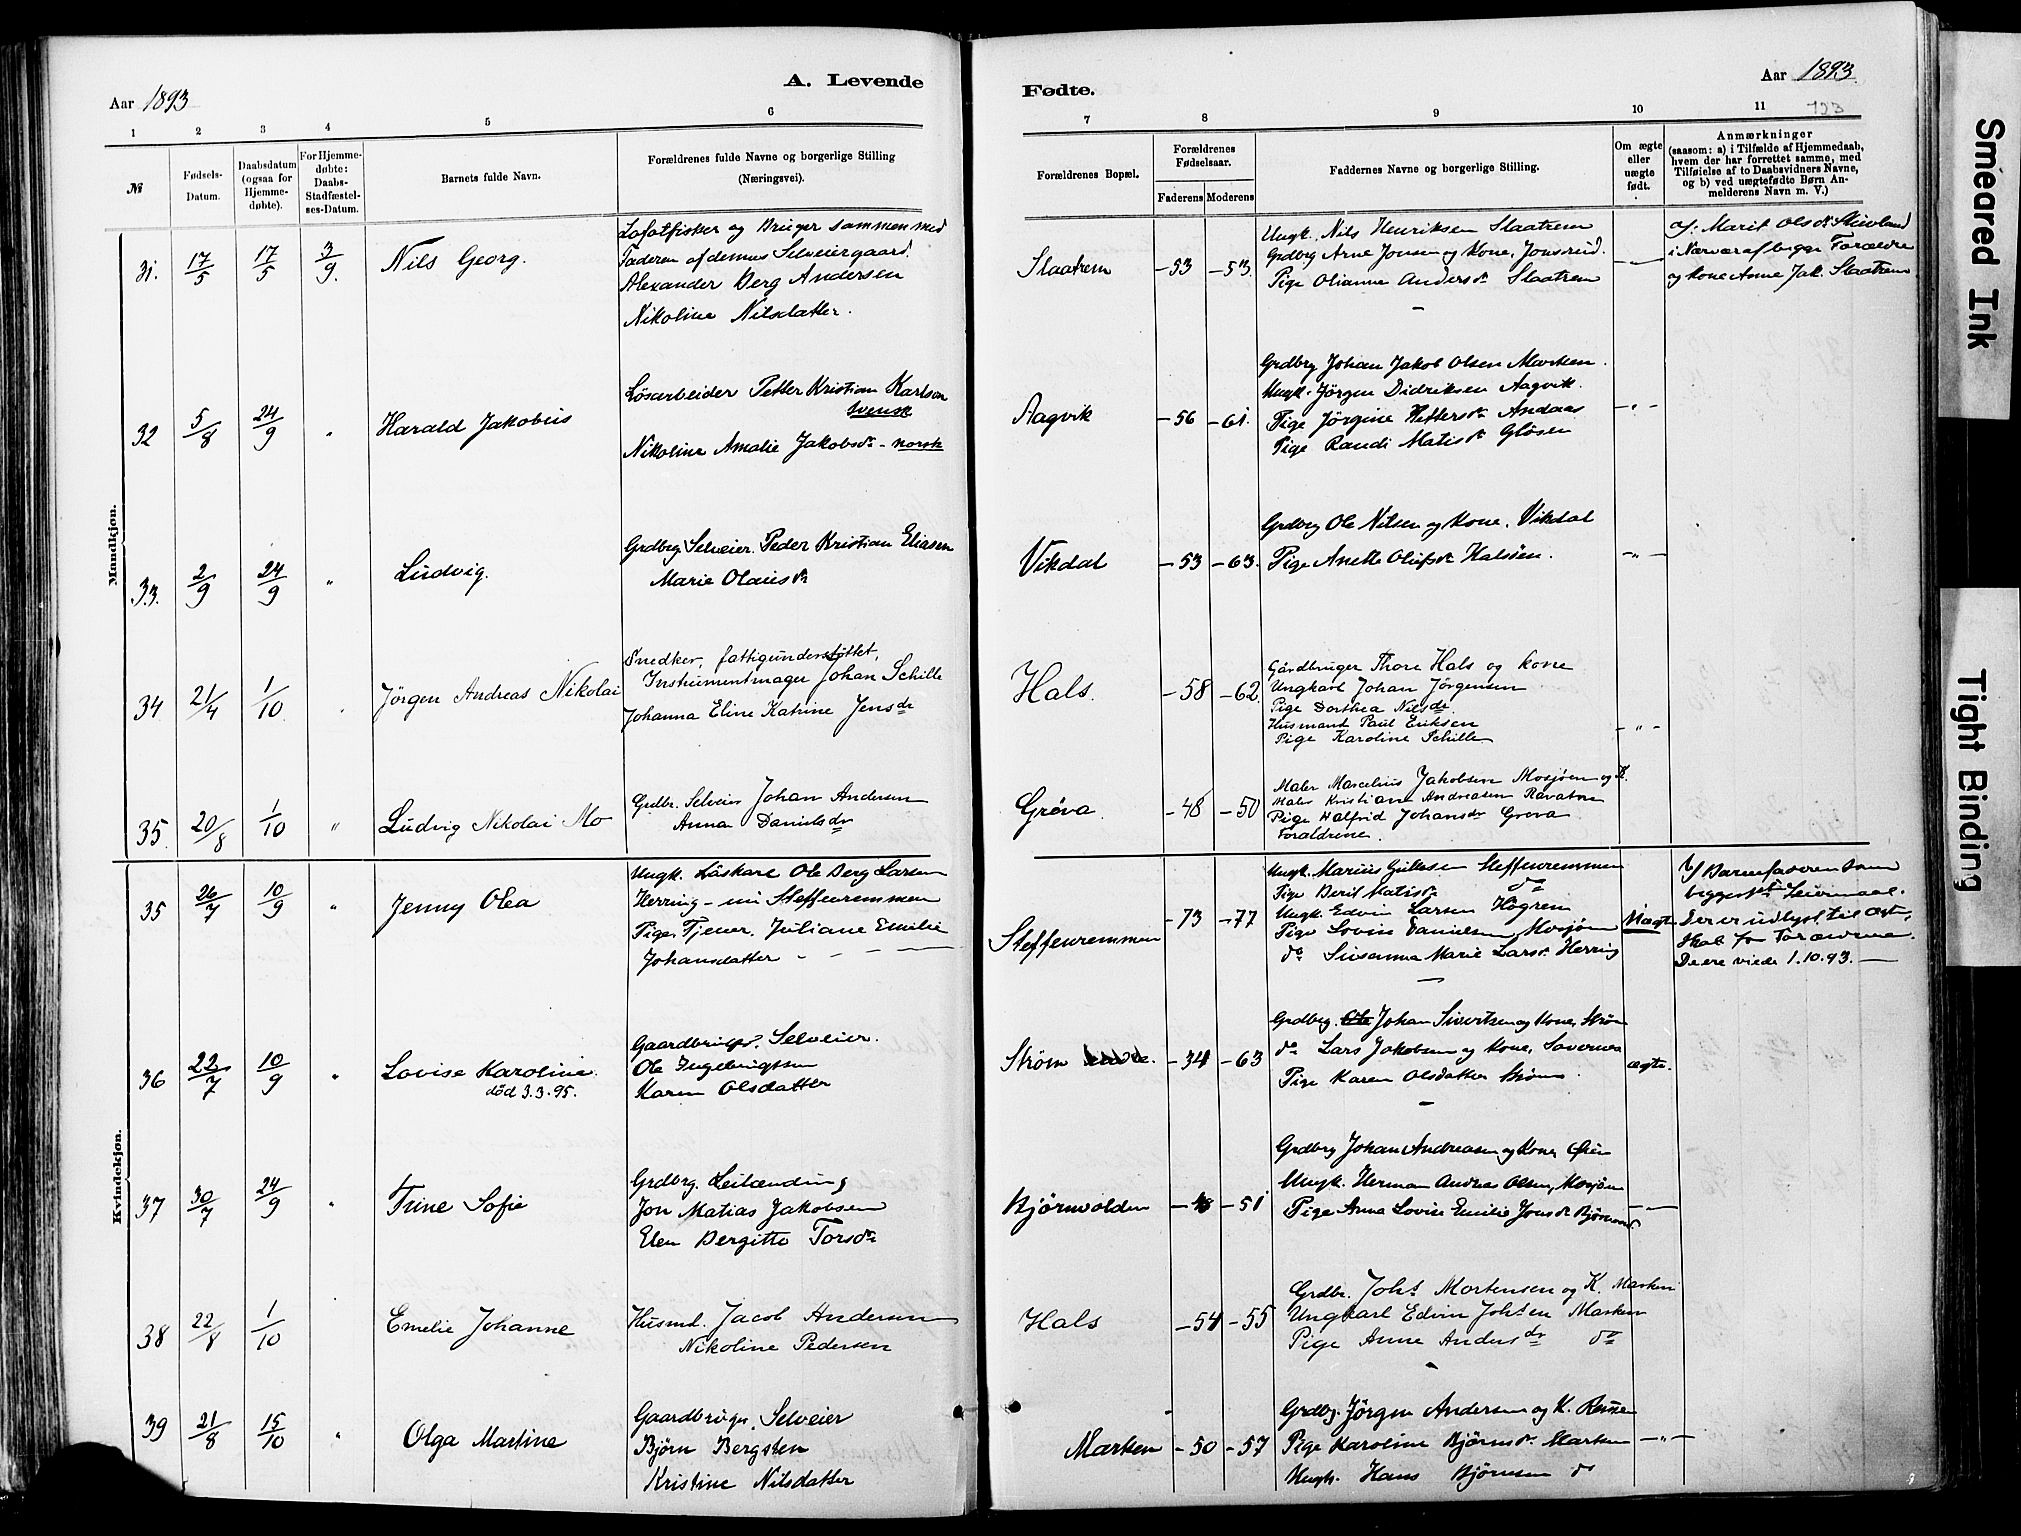 A. Levende
Aar 1893
1 2 3 4 5 6
№
Fødsels-Datum.
Daabsdatum (ogsaa for Hjemme-døbte).
For Hjemme-døbte: Daabs-Stadfæstel-ses-Datum.
Barnets fulde Navn.
Forældrenes fulde Navne og borgerlige Stilling (Næringsvei).
Mandkjøn.
31. 17/5 17/5 3/9. Nils Georg.
Lofotfisker og Bruger sammen med
Faderen af dennes Selveiergaard.
Alexander Berg Andersen
Nikoline Nilsdatter.
32 5/8 24/9 " Harald Jakobus
Løsarbeider Petter Kristian Karlson
svensk
Nikoline Amalie Jakobsdr - norsk
33. 2/9 24/9 " Ludvig.
Grdbrg. Selveier. Peder Kristian Eliasen
Marie Olausdr
34 21/4 1/10 " Jörgen Andreas Nikolai
Snedker, fattigunderstøttet,
Instrumentmager Johan Schille
Johanna Eline Katrine Jensdr
35. 20/8 1/10 " Ludvig Nikolai Mo
Grdbr. Selveier Johan Andersen
Anna Danielsdr
Kvindekjøn.
35 26/7 10/9 " Jenny Olea
Ungk. Løskarl Ole Berg Larsen
Herring - nu Steffenremmen
Pige Tjener. Juliane Emilie
Johansdatter - - -
36 22/7 10/9 " Lovise Karoline.
död 3.3.95.
Gaardbruger. Selveier.
Ole Ingebrigtsen
Karen Olsdatter
37 30/7 24/9 " Trine Sofie
Grdbrg. Leilænding
Jon Matias Jakobsen
Elen Bergitte Torsdr
38 22/8 1/10 Emelie Johanne
Husmd. Jacob Andersen
Nikoline Pedersen
39 21/8 15/10 " Olga Martine
Gaardbruger, Selveier
Björn Bergsten
Kristine Nilsdatter
Fødte.
Aar 1893.
123
7 8 9 10 11
Forældrenes Bopæl.
Forældrenes Fødselsaar.
Faderens Moderens
Faddernes Navne og borgerlige Stilling.
Om ægte eller uægte født.
Anmærkninger
(saasom: a) i Tilfælde af Hjemmedaab,
hvem der har forrettet samme, med
Tilføielse af to Daabsvidners Navne,
og b) ved uægtefødte Børn An-
melderens Navn m. V.)
Slaatrem -53 -53. -"-
Ungk. Nils Henriksen Slaatrem
Grdbrg Arne Jonsen og Kone, Jonsrud.
Pige Olianna Andersdr Slaatrem
af: Marit Olsdr
i Nærvær af begge Forældre
og Kone Anne Jak. Slaatrem
Aagvik -56 -61. -"-
Grdbrg Johan Jakob Olsen Marken.
Ungk. Jörgen Didriksen Aagvik.
Pige Jörgine Pettersdr Andaas
Pige Randi Matisdr Glösen
Vikdal -53 -63. -"-
Grdbrg Ole Nilsen og Kone, Vikdal
Pige Anette Olufsdr Halsöen.
Hals. -58 -62. -"-
Gårdbruger Thore Hals og kone
Ungkarl Johan Jörgensen
Pige Dorthea Nilsdr.
Husmand Paul Eriksen
Pige Karoline Schille
Gröva. -48 -50
Maler Marcelius Jakobsen Mosjøen og K.
Maler Kristian Andreasen
Pige Halfrid Johansdr Gröva
Forældrene.
Steffenremmen -73 -77 Uægte
Ungk. Marius Steffenremmen
Pige Berit Matisdr do
Ungk. Edvin Larsen Högrem
Pige Lovise Danielsen Mosjøen
do Susanna Marie Larsdr Herring
v/ Barnefaderen som
begges 1ste Leiermaal.
Der er udlyst til Ægte-
skab for Forældrene.
De ere viede 1.10.93.
Strøm -34 -63 ægte.
Grdbrg. Johan Sivertsen og Kone, Strøm
do Lars Jakobsen og Kone,
Pige Karen Olsdatter Strøm.
Björnvolden -48 -51 -"-
Grdbrg Johan Andreasen og Kone, Öien
Ungk. Herman Andreas Olsen, Mosjøen
Pige Anna Lovise Emilie Jonsdr
Hals -54 -55
Grdbr. Johs Mortensen og K. Marken
Ungkarl Edvin Johsen Marken
Pige Anne Andersdr do
Marken -50 -57 -"-
Grdbrg. Jörgen Andersen og K. Remmen
Pige Karoline Björnsdr. Marken
Ungk. Hans Björnsen do
Smeared Ink
Tight Binding